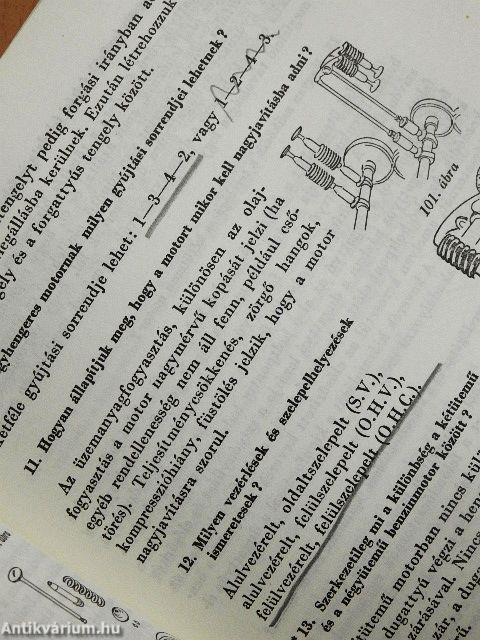 tengelyt pedig forgási irányban a
végállásba kerülnek. Ezután létrehozzuk
gely és a forgattyús tengely között.
gyhengeres motornak milyen gyújtási sorrendjei lehetnek?
kétféle gyújtási sorrendje lehet: 1—3—4—2, vagy 1—2—4—3.
11. Hogyan állapítjuk meg, hogy a motort mikor kell nagyjavításba adni?
Az üzemanyagfogyasztás, különösen az olaj-
fogyasztás a motor nagymérvű kopását jelzi (ha
egyéb rendellenesség nem áll fenn, például cső-
törés). Teljesítménycsökkenés, zörgő hangok,
kompresszióhiány, füstölés jelzik, hogy a motor
nagyjavításra szorul.
101. ábra
12. Milyen vezérlések és szelepelhelyezések
ismeretesek?
Alulvezérelt, oldaltszelepelt (S.V.),
alulvezérelt, felülszelepelt (O.H.V.),
felülvezérelt, felülszelepelt (O.H.C.).
13. Szerkezetileg mi a különbség a kétütemű
és a négyütemű benzinmotor között?
ütemű motorban nincs kül
dugattyú végzi a hen
járásával. Ninc
ár a dug
Antikvárium.hu